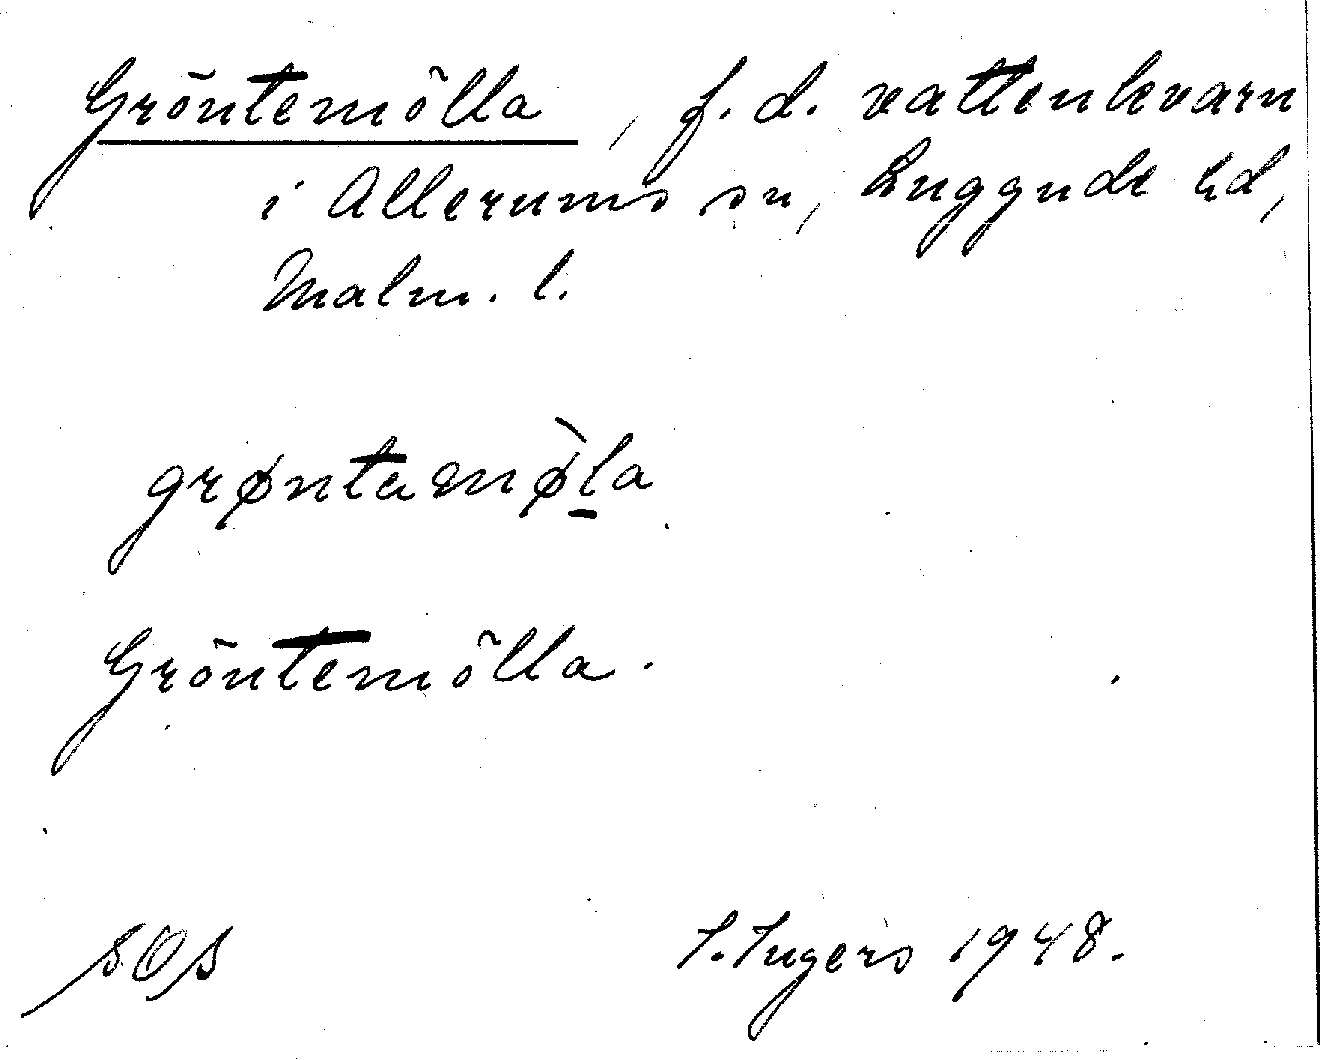 Gröntemölla, f. d. vattenkvarn
i Allerums sn, Luggude hd,
Malm. l.
grøntamø̀la
Gröntemölla.
SOS
I. Ingers 1948.